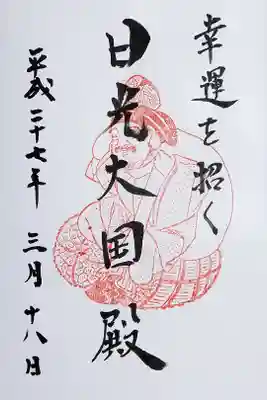 幸運を招く
日光大国殿
平成二十七年 三月 十八日